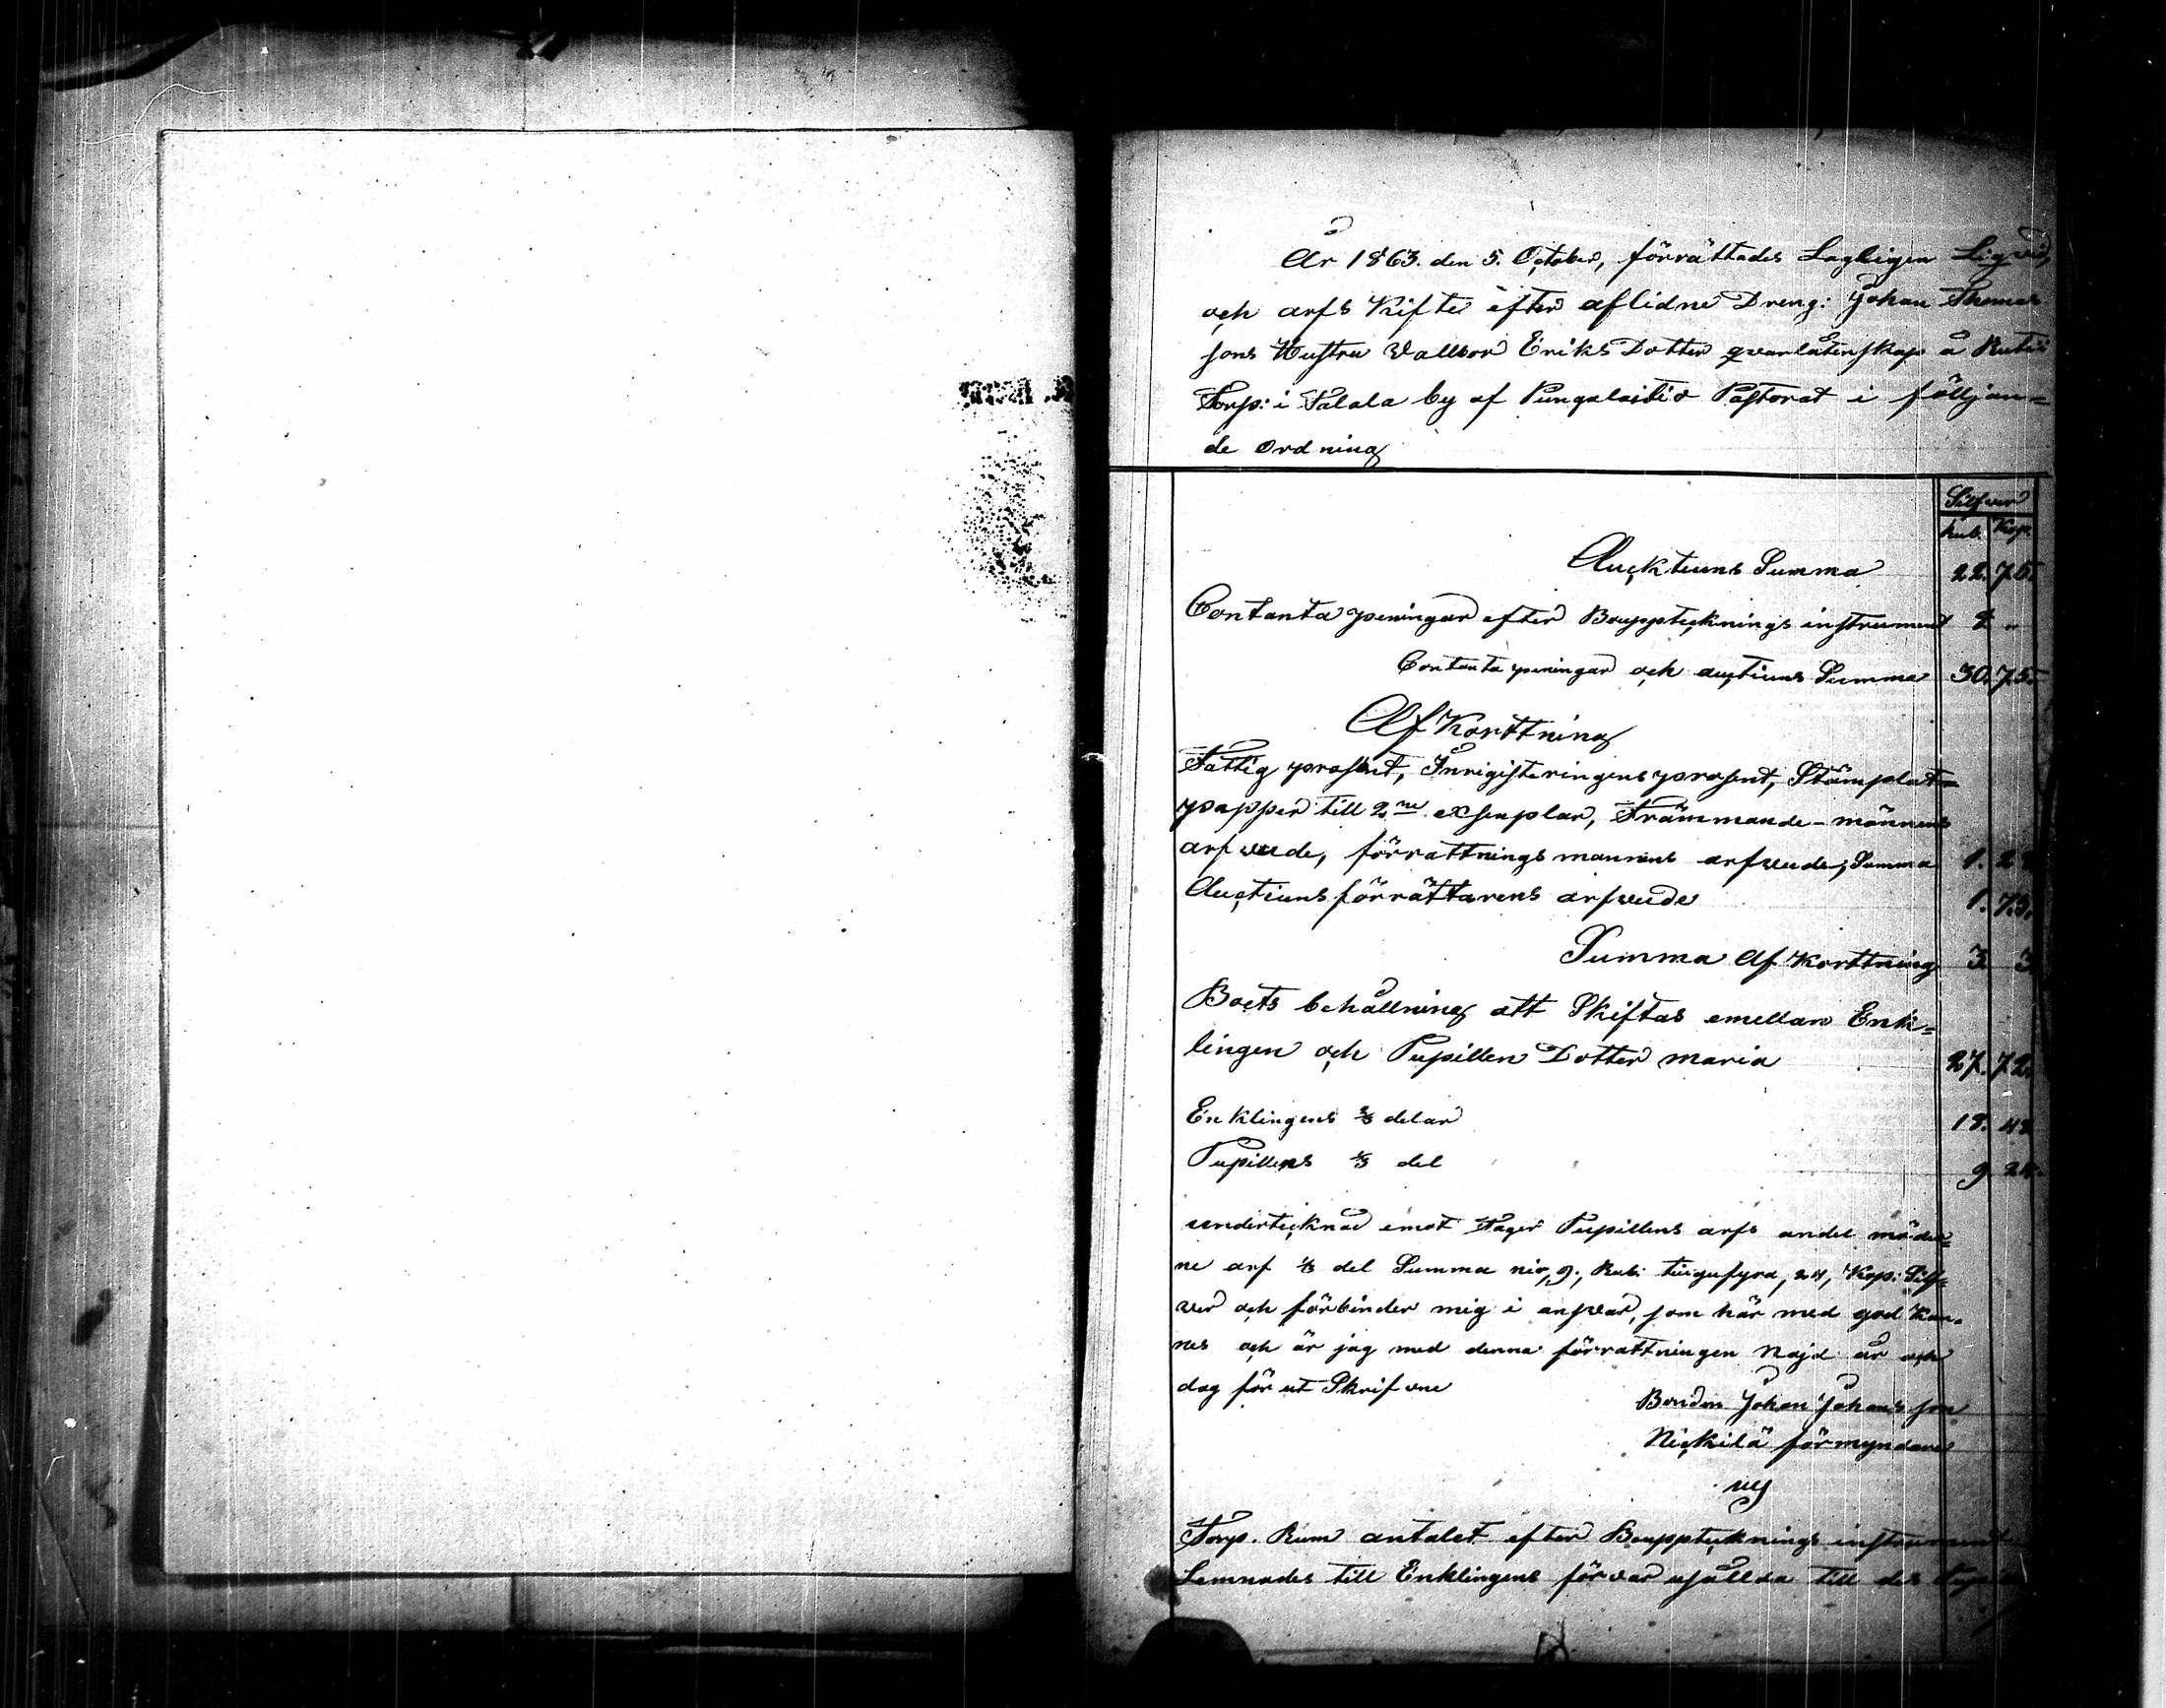 År 1863. den 5. October, förrättades Lagligen Liqvid,
och arfs Kifte efter aflidne Dreng: Johan Thomas
sons Hustru Vallbor Eriks Dotter qvarlåtenskap å
Torp: i Palala by af Pungalaitio Pastorat i följjan=
de Ordning
Silfwer
Rub. Kop.
Aucktiuns Summa 22. 75.
Contanta peningar efter Bouppteckningsinstrument 8 "
Contanta peningar och auctiuns Summa 30. 75.
Af Korttning
Fattig prosent, Inrigisteringens prosent, Stämplat=
papper till 2ne exsemplar, Främmande-männens
arfwude, förrattningsmannens arfwude, Summa 1.
Auctiunsförrättarens arfwude 1. 73.
Summa Af Korttning 3 3.
Boets behållning att Skiftas emellan Enk=
lingen och Pupillen Dotter Maria 27. 72.
Enklingens 2/3 delar 18. 48
Pupillens 1/3 del 9. 24.
undertecknad emot Tager Pupillens arfs andel möder=
ne arf 1/3 del Summa nio, 9., Rub: tiugufyra, 24, Kop: Silf=
wer och förbinder mig i answar, som här med god Kän=
nes och är jag med denna förrattningen Nöjd år och
dag för ut Skrifvne
Bonden Johan Johans son
Nickilä förmyndare
Torp. Rum antalet efter Bouppteckningsinstrument
Lemnades till Enklingens förvar osållda till des